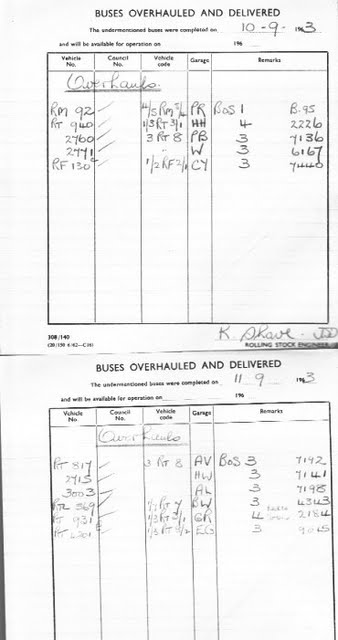 BUSES OVERHAULED AND DELIVERED
The undermentioned buses were completed on 10-9- 1963
and will be available for operation on 196
Vehicle No. Council No. Vehicle code Garage Remarks
Overhauls
RM 92 4/5 RM 5/4 PR BOS 1 B.95
RT 940 1/3 RT 3/1 HH 4 2226
2760 3 RT 8 PB 3 7136
2771 " W 3 6167
RF 130 1/2 RF 2/1 CY 3 7440
308/140
K. Shave
ROLLING STOCK ENGINEER
BUSES OVERHAULED AND DELIVERED
The undermentioned buses were completed on 11-9 1963
and will be available for operation on 196
Vehicle No. Council No. Vehicle code Garage Remarks
Overhauls
RT 817 3 RT 8 AV BOS 3 7142
2715 HW 3 7141
3003 AL 3 7198
RTL 569 BW 3 4343
RT 931 1/3 RT 3/1 GR 4 2184
RT 1/3 RT EG 3 9015